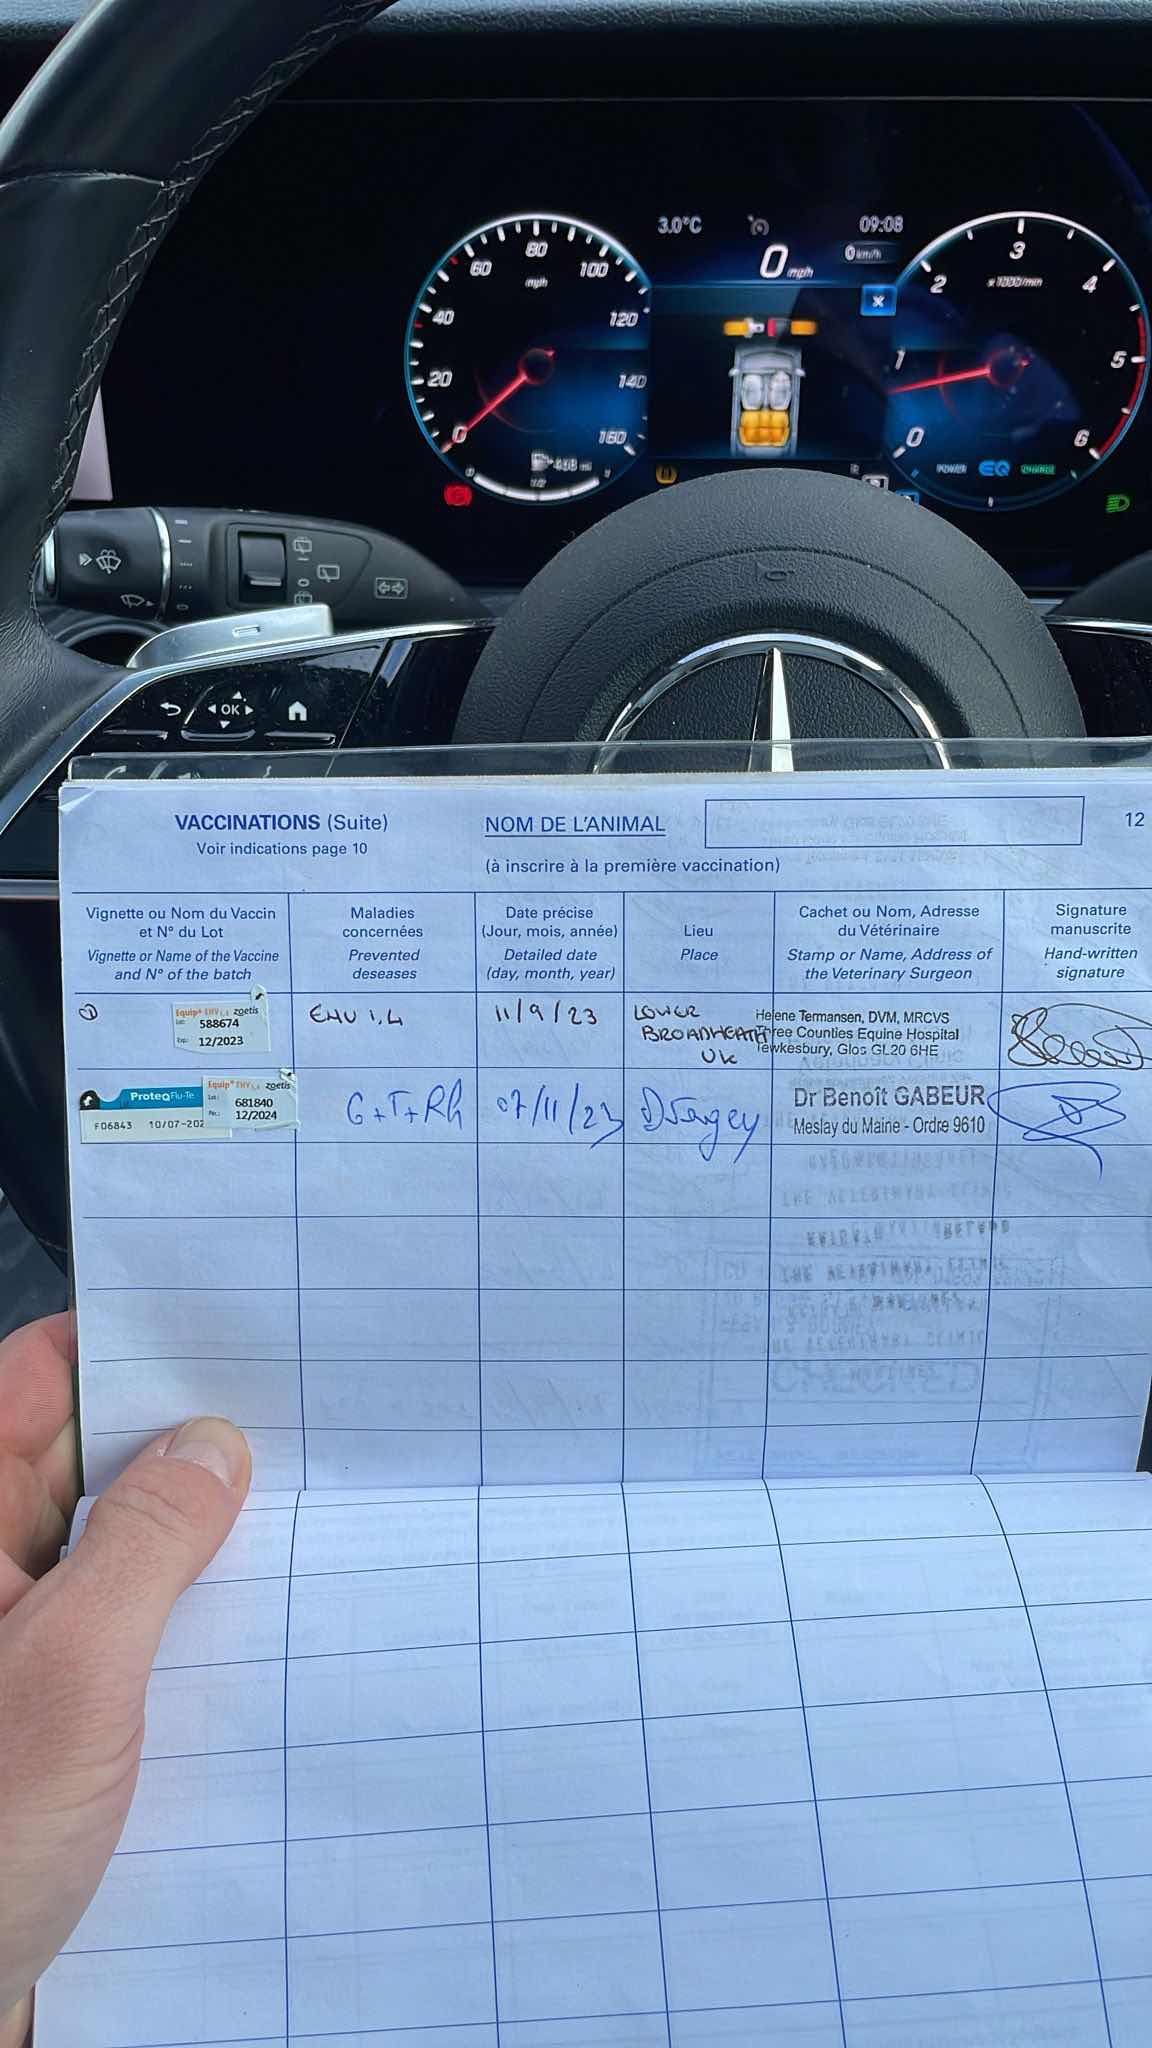 3.0°C
09:08
0 mph
0 km/h
0 20 40 60 80 100 120 140 160
mph
468 mi
1/2
0 1 2 3 4 5 6
x1000/min
POWER EQ CHARGE
OK
VACCINATIONS (Suite)
Voir indications page 10
NOM DE L'ANIMAL
(à inscrire à la première vaccination)
12
Vignette ou Nom du Vaccin
et N° du Lot
Vignette or Name of the Vaccine
and N° of the batch
Maladies
concernées
Prevented
deseases
Date précise
(Jour, mois, année)
Detailed date
(day, month, year)
Lieu
Place
Cachet ou Nom, Adresse
du Vétérinaire
Stamp or Name, Address of
the Veterinary Surgeon
Signature
manuscrite
Hand-written
signature
Equip® EHV 1,4 zoetis
Lot: 588674
Exp: 12/2023
EHV 1,4
11/9/23
LOWER
BROADHEATH
UK
Helene Termansen, DVM, MRCVS
Three Counties Equine Hospital
Tewkesbury, Glos GL20 6HE
ProteqFlu-Te
F06843 10/07-202
Equip® EHV 1,4 zoetis
Lot: 681840
12/2024
G+T+Rh
07/11/23
Dr Benoît GABEUR
Meslay du Maine - Ordre 9610